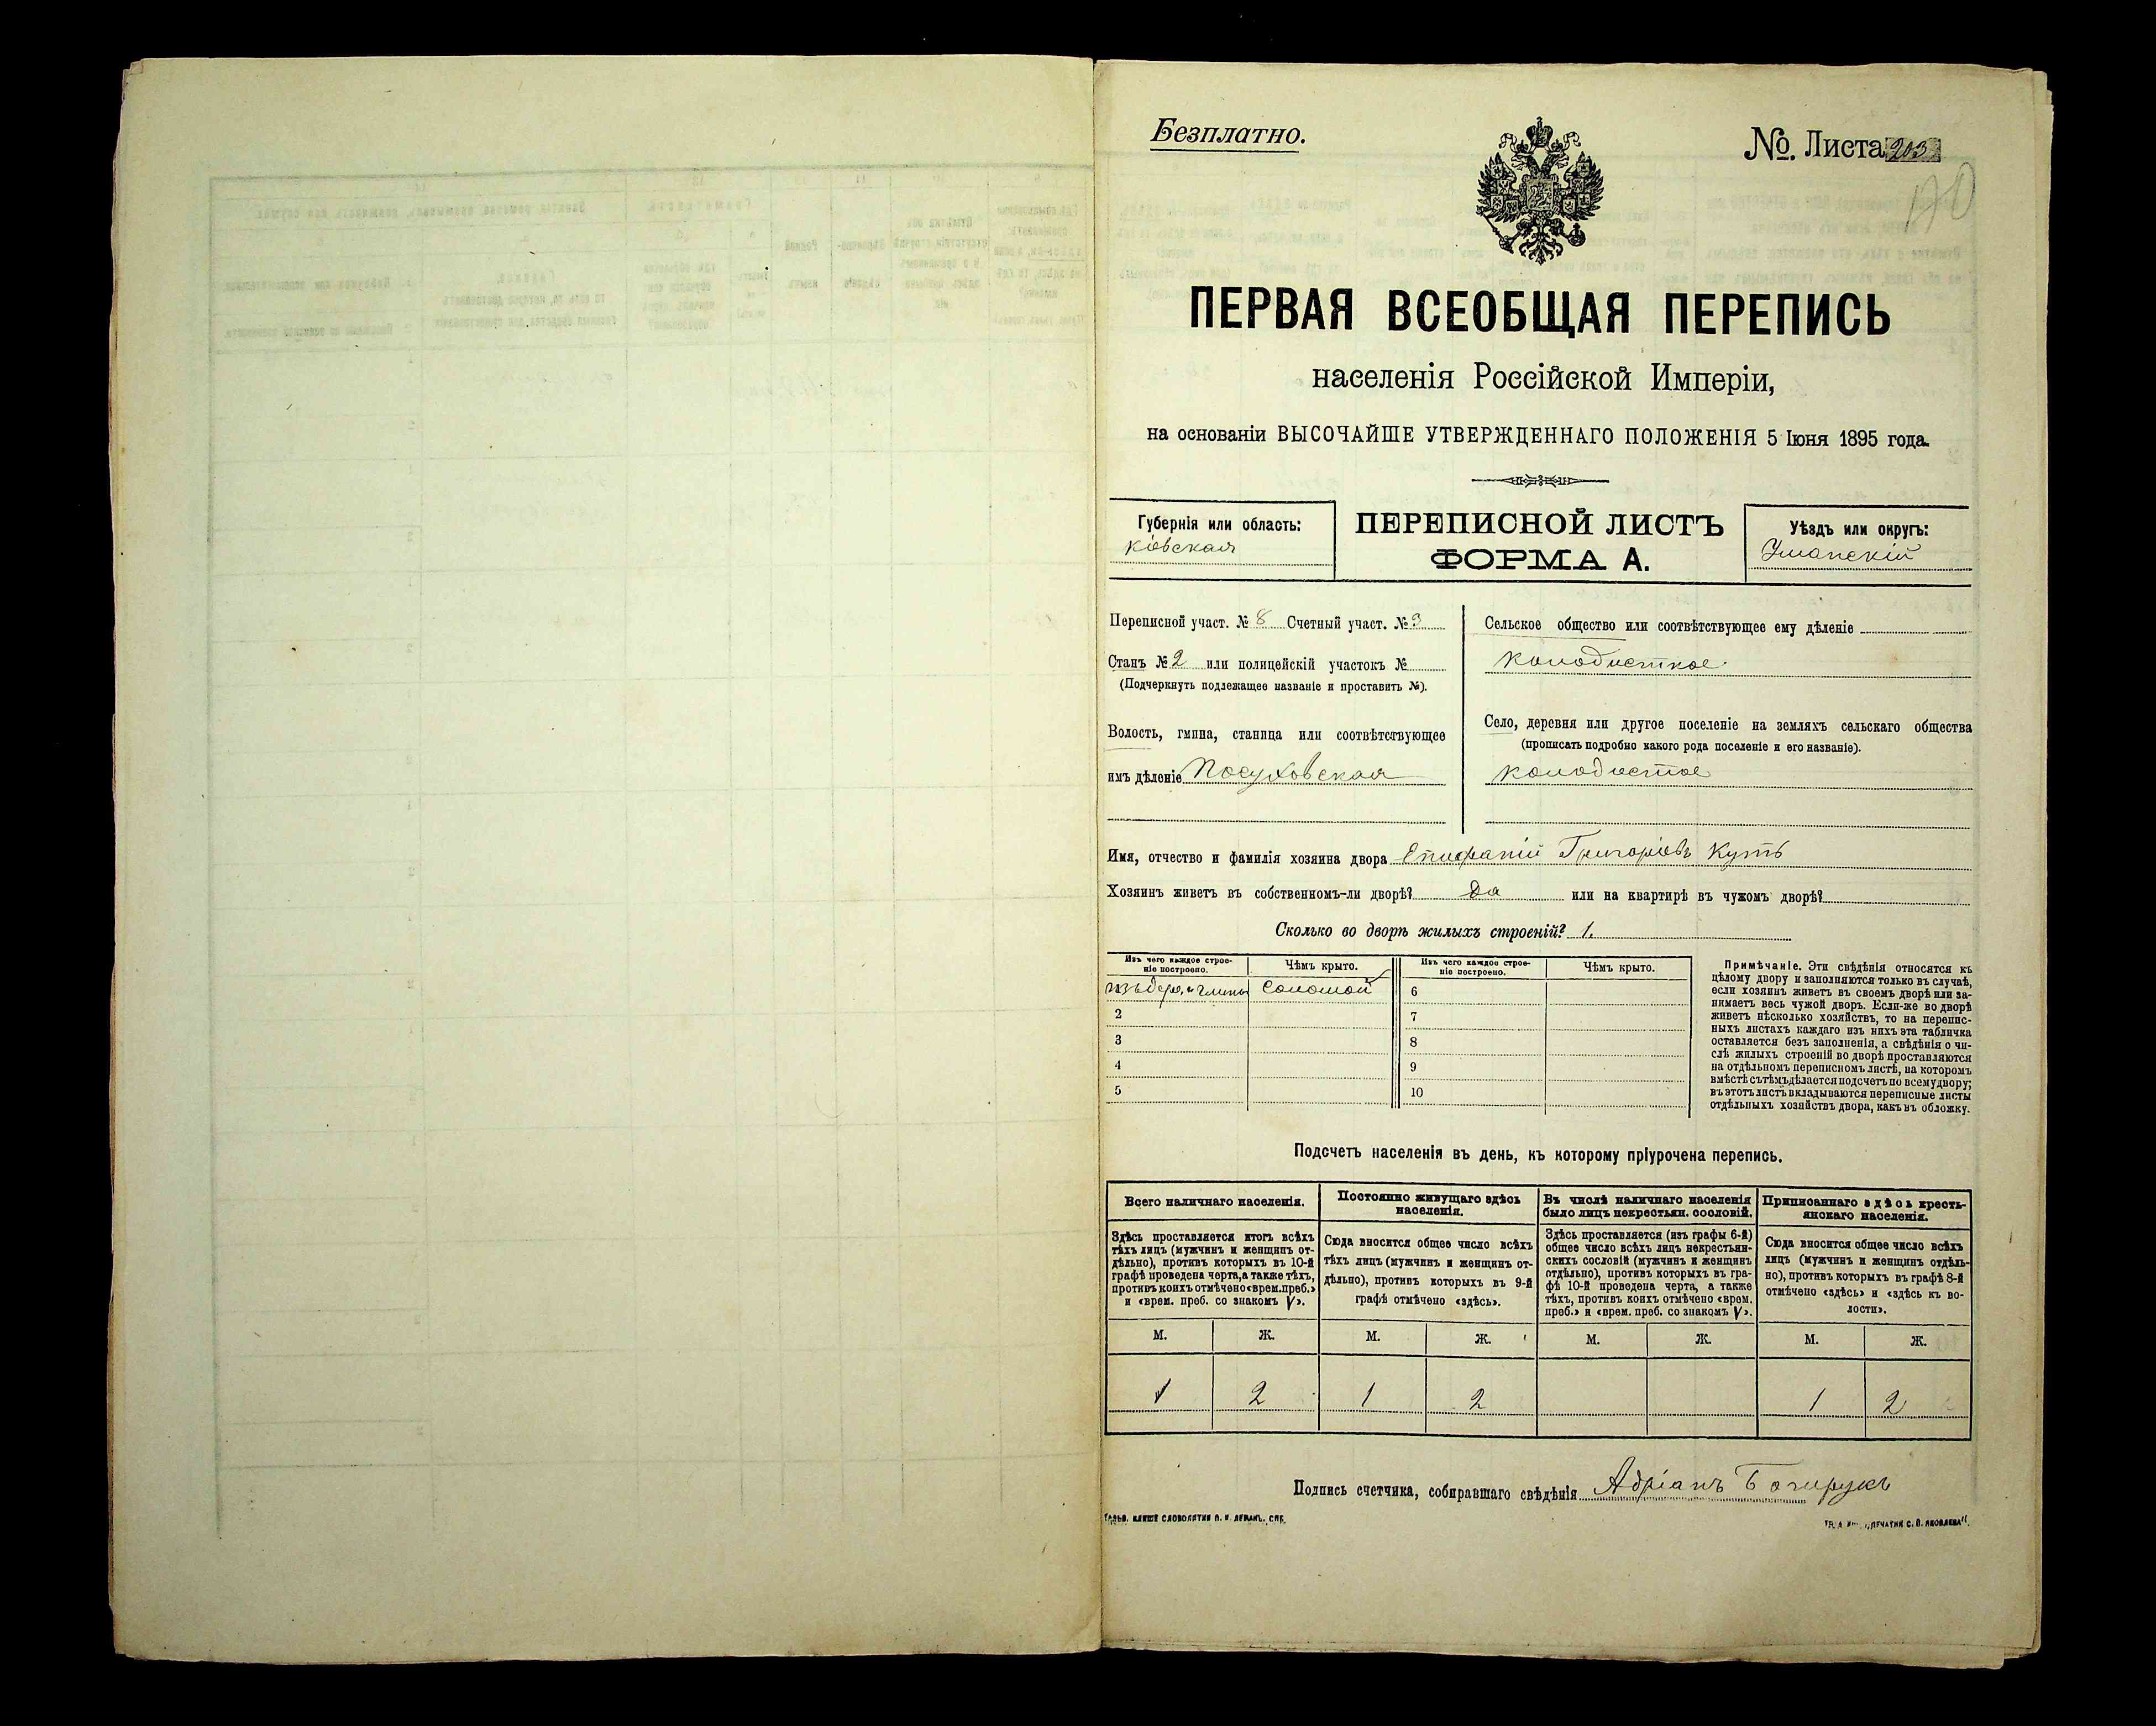 Безплатно.
№. Листа 203
ПЕРВАЯ ВСЕОБЩАЯ ПЕРЕПИСЬ
населенія Россійской Имперіи,
на основаніи ВЫСОЧАЙШЕ УТВЕРЖДЕННАГО ПОЛОЖЕНІЯ 5 Іюня 1895 года.
Губернія или область:
Кіевская
ПЕРЕПИСНОЙ ЛИСТЪ
ФОРМА А.
Уѣздъ или округъ:
Уманскій
Переписной участ. № 8 Счетный участ. № 3
Станъ № 2 или полицейскій участокъ №
(Подчеркнуть подлежащее названіе и проставить №).
Волость, гмина, станица или соотвѣтствующее
имъ дѣленіе Посуховская
Сельское общество или соотвѣтствующее ему дѣленіе
Колодисткое
Село, деревня или другое поселеніе на земляхъ сельскаго общества
(прописать подробно какого рода поселеніе и его названіе).
Колодистое
Имя, отчество и фамилія хозяина двора Епифаній Григоріевъ Куть
Хозяинъ живетъ въ собственномъ-ли дворѣ? Да или на квартирѣ въ чужомъ дворѣ?
Сколько во дворѣ жилыхъ строеній? 1.
Изъ чего каждое строе-
ніе построено.
Чѣмъ крыто.
Изъ чего каждое строе-
ніе построено.
Чѣмъ крыто.
изъ дер. и глины Соломой 6
2 7
3 8
4 9
5 10
Примѣчаніе. Эти свѣдѣнія относятся къ
цѣлому двору и заполняются только въ случаѣ,
если хозяинъ живетъ въ своемъ дворѣ или за-
нимаетъ весь чужой дворъ. Если-же во дворѣ
живетъ нѣсколько хозяйствъ, то на перепис-
ныхъ листахъ каждаго изъ нихъ эта табличка
оставляется безъ заполненія, а свѣдѣнія о чи-
слѣ жилыхъ строеній во дворѣ проставляются
на отдѣльномъ переписномъ листѣ, на которомъ
вмѣстѣ съ тѣмъ дѣлается подсчетъ по всему двору;
въ этотъ листъ вкладываются переписные листы
отдѣльныхъ хозяйствъ двора, какъ въ обложку.
Подсчетъ населенія въ день, къ которому пріурочена перепись.
Всего наличнаго населенія.
Здѣсь проставляется итогъ всѣхъ
тѣхъ лицъ (мужчинъ и женщинъ от-
дѣльно), противъ которыхъ въ 10-й
графѣ проведена черта, а также тѣхъ,
противъ коихъ отмѣчено «врем. преб.»
и «врем. преб. со знакомъ V».
Постоянно живущаго здѣсь
населенія.
Сюда вносится общее число всѣхъ
тѣхъ лицъ (мужчинъ и женщинъ от-
дѣльно), противъ которыхъ въ 9-й
графѣ отмѣчено «здѣсь».
Въ числѣ наличнаго населенія
было лицъ некрестьян. сословій.
Здѣсь проставляется (изъ графы 6-й)
общее число всѣхъ лицъ некрестьян-
скихъ сословій (мужчинъ и женщинъ
отдѣльно), противъ которыхъ въ гра-
фѣ 10-й проведена черта, а также
тѣхъ, противъ коихъ отмѣчено «врем.
преб.» и «врем. преб. со знакомъ V».
Приписаннаго здѣсь кресть-
янскаго населенія.
Сюда вносится общее число всѣхъ
лицъ (мужчинъ и женщинъ отдѣль-
но), противъ которыхъ въ графѣ 8-й
отмѣчено «здѣсь» и «здѣсь къ во-
лости».
М. Ж. М. Ж. М. Ж. М. Ж.
1 2 1 2 1 2
Подпись счетчика, собиравшаго свѣдѣнія Адріанъ
СЛОВОЛИТНИ О. И. ЛЕМАНЪ, СПБ.
ПЕЧАТНИ С. П. ЯКОВЛЕВА".